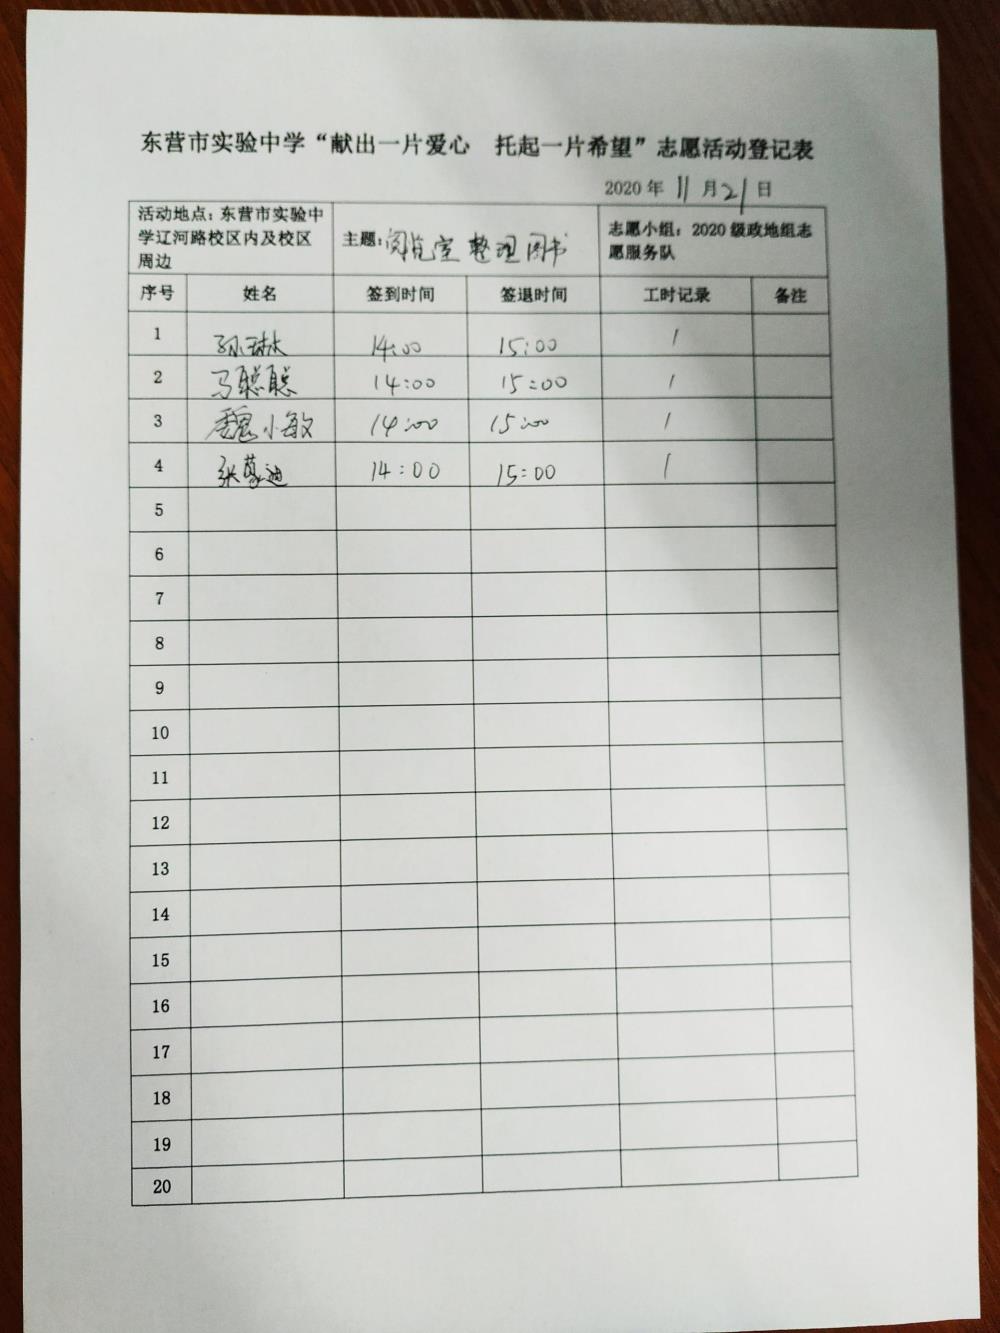 东营市实验中学“献出一片爱心 托起一片希望”志愿活动登记表
2020 年 11 月 21 日
活动地点：东营市实验中
学辽河路校区内及校区
周边
主题：阅览室整理图书
志愿小组：2020 级政地组志
愿服务队
序号 姓名 签到时间 签退时间 工时记录 备注
1 孙琳 14:00 15:00 1
2 马聪聪 14:00 15:00 1
3 魏小敏 14:00 15:00 1
4 张蒙迪 14:00 15:00 1
5
6
7
8
9
10
11
12
13
14
15
16
17
18
19
20